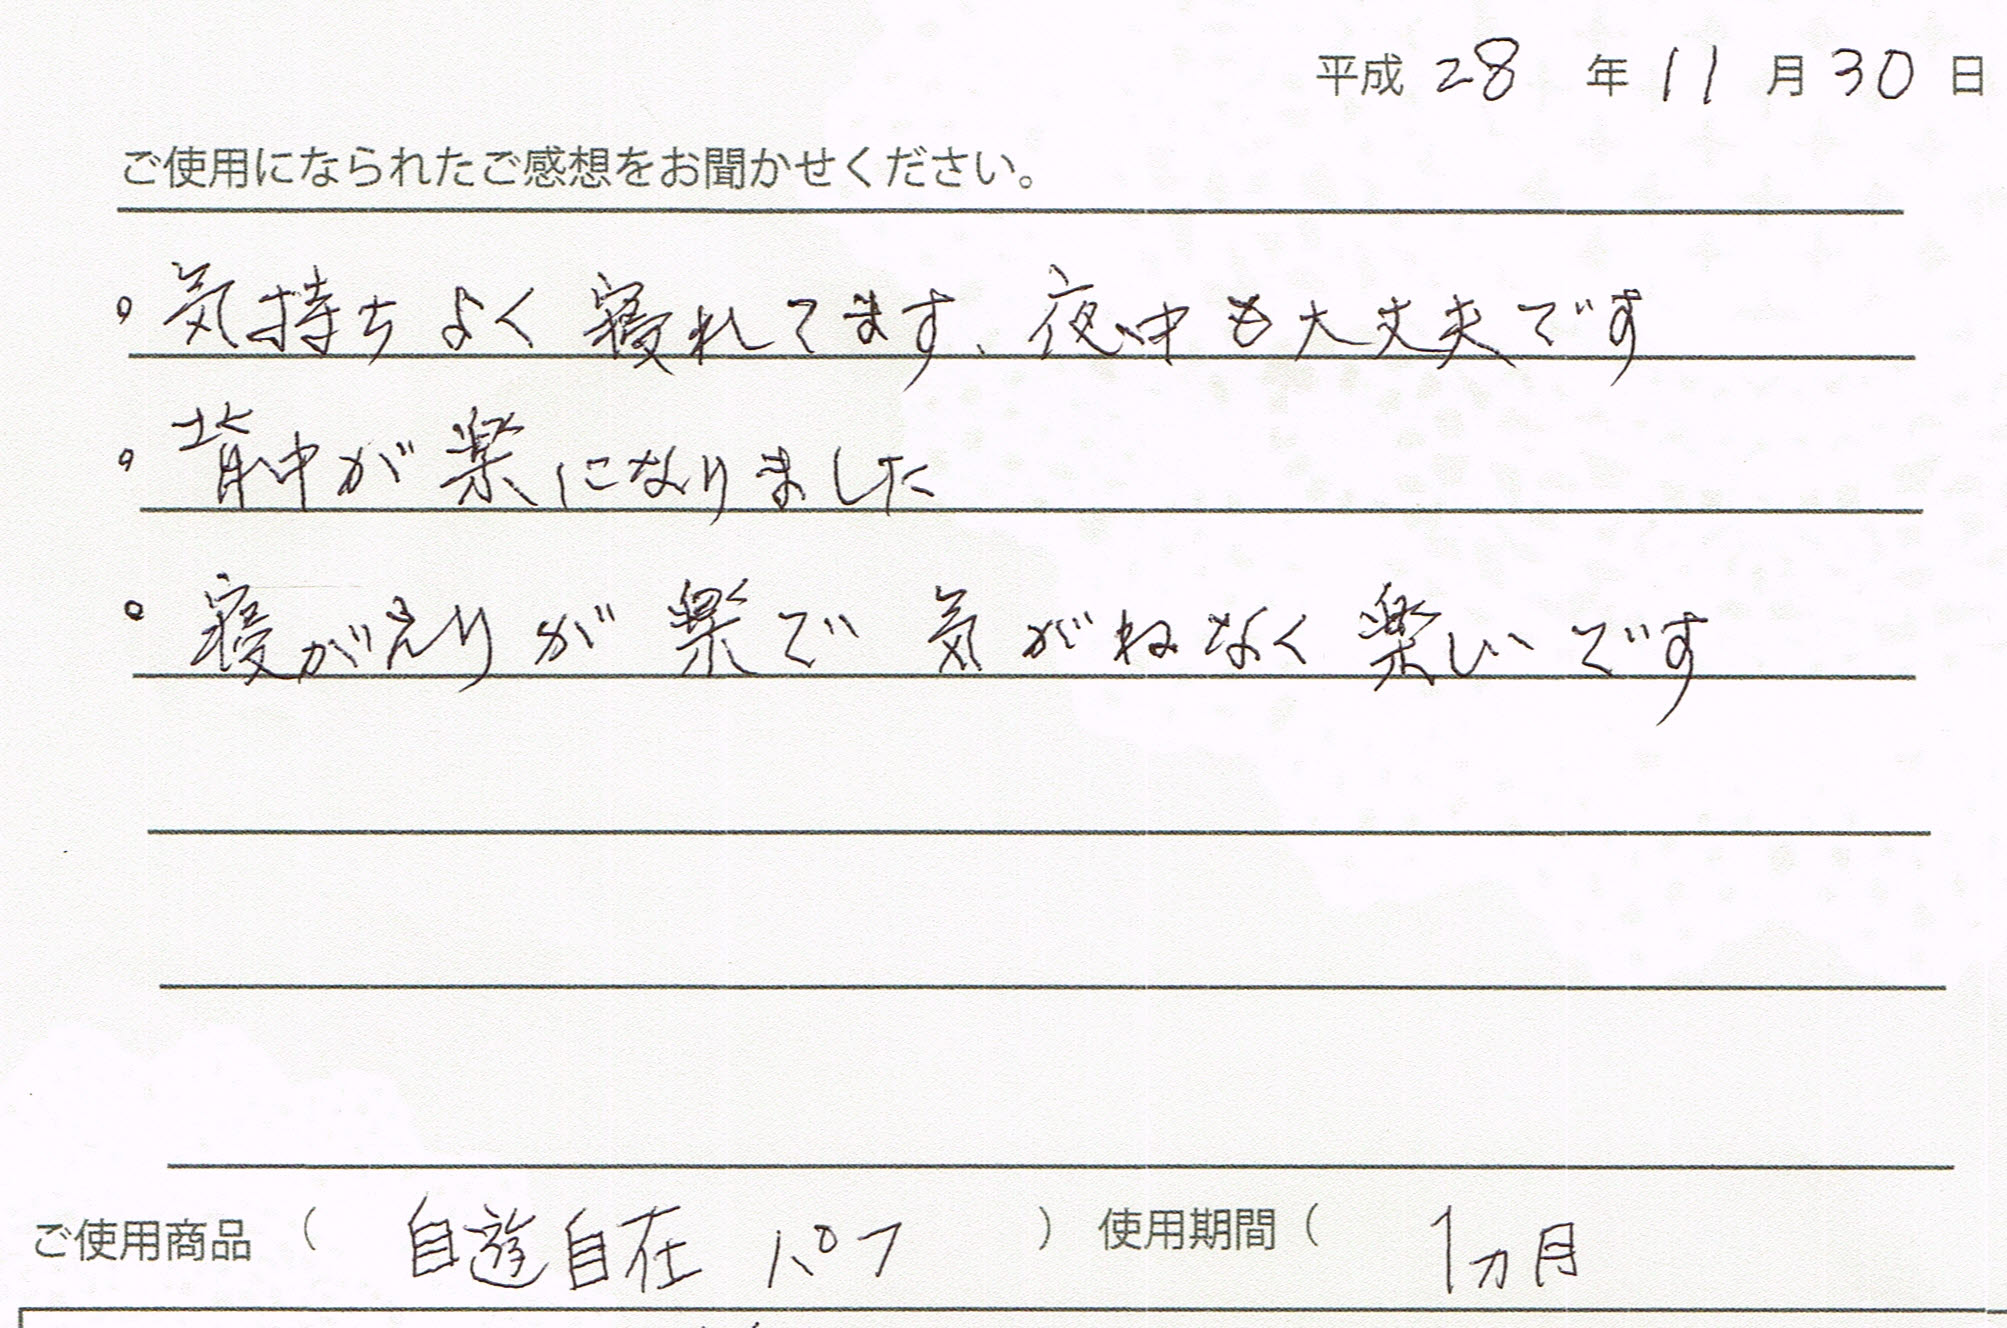 平成 28 年 11 月 30 日
ご使用になられたご感想をお聞かせください。
。気持ちよく寝れてます、夜中も大丈夫です
。背中が楽になりました
。寝がえりが楽で気がねなく楽しいです
ご使用商品（ 自遊自在 パフ ）使用期間（ 1ヵ月